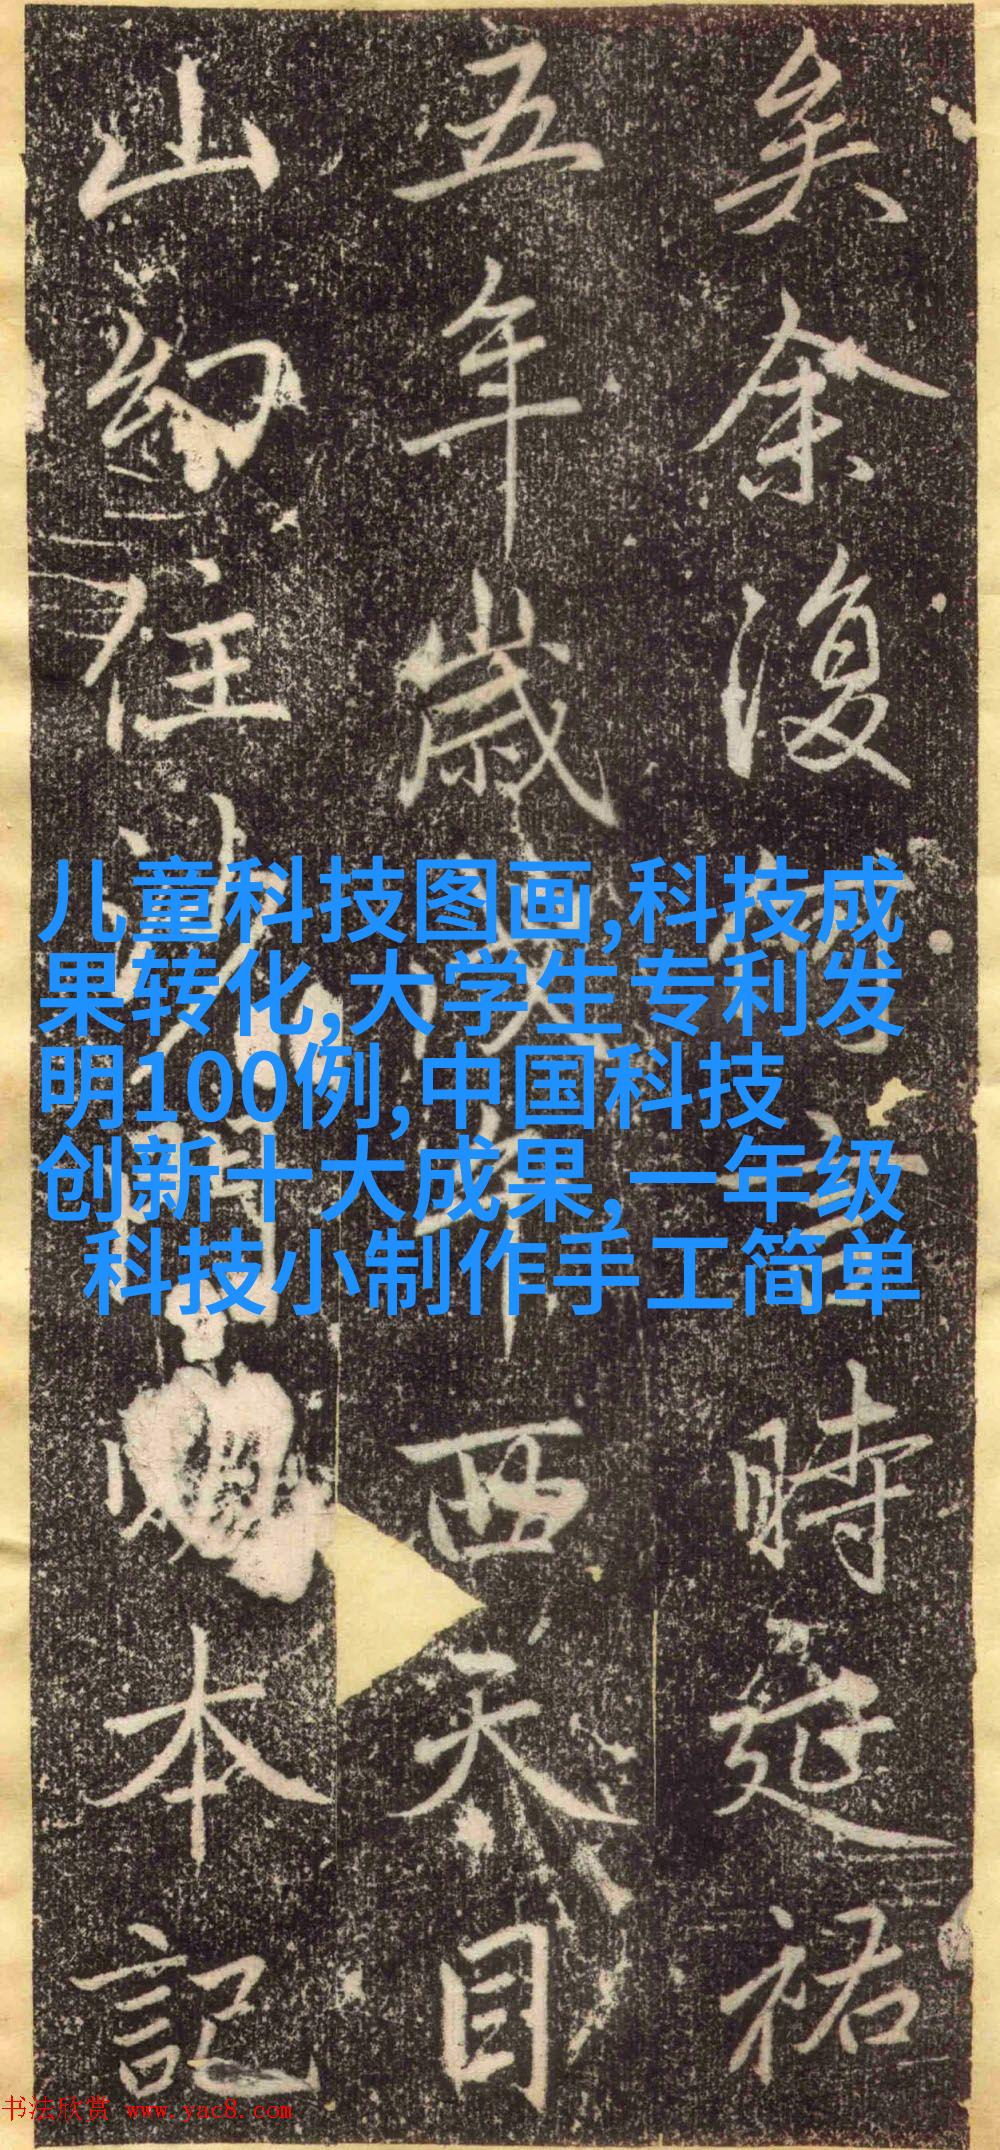 矣余復何言時延祐
五年歲戊午西天目
山幻住沙門明本記
儿童科技图画,科技成
果转化,大学生专利发
明100例,中国科技
创新十大成果,一年级
科技小制作手工简单
书法欣赏 www.yac8.com